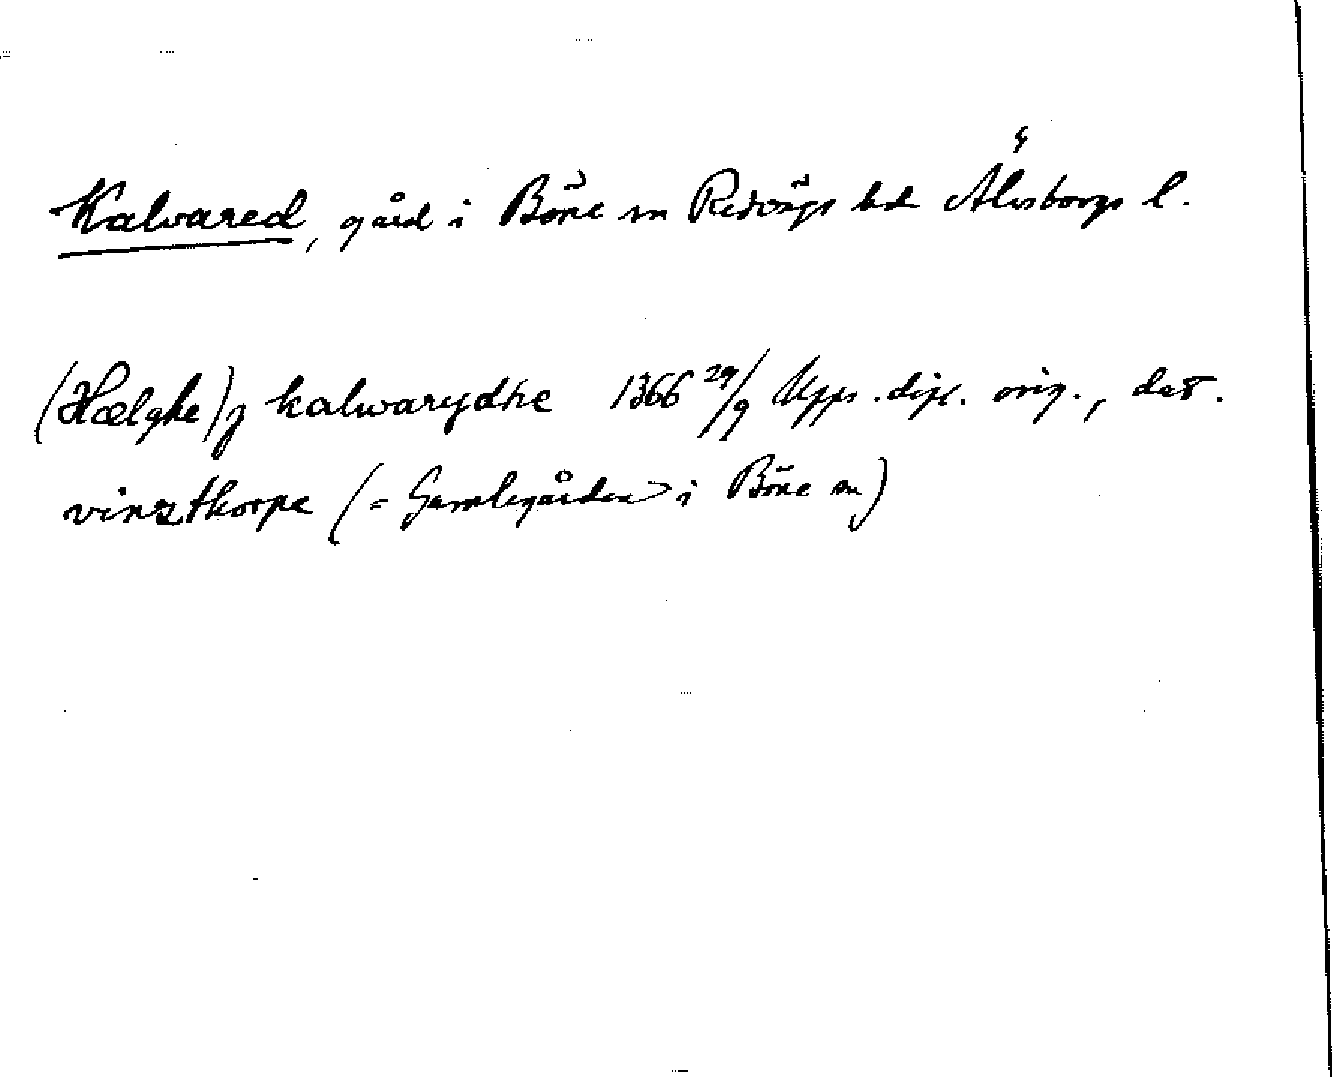 Kalvared, gård i Böne sn Redvägs hd Älvsborgs l.
(Hælghe) j kalwarydhe 1366 29/9 Upps. dipl. orig., dat.
vinzthorpe (= Gamlegården i Böne sn)